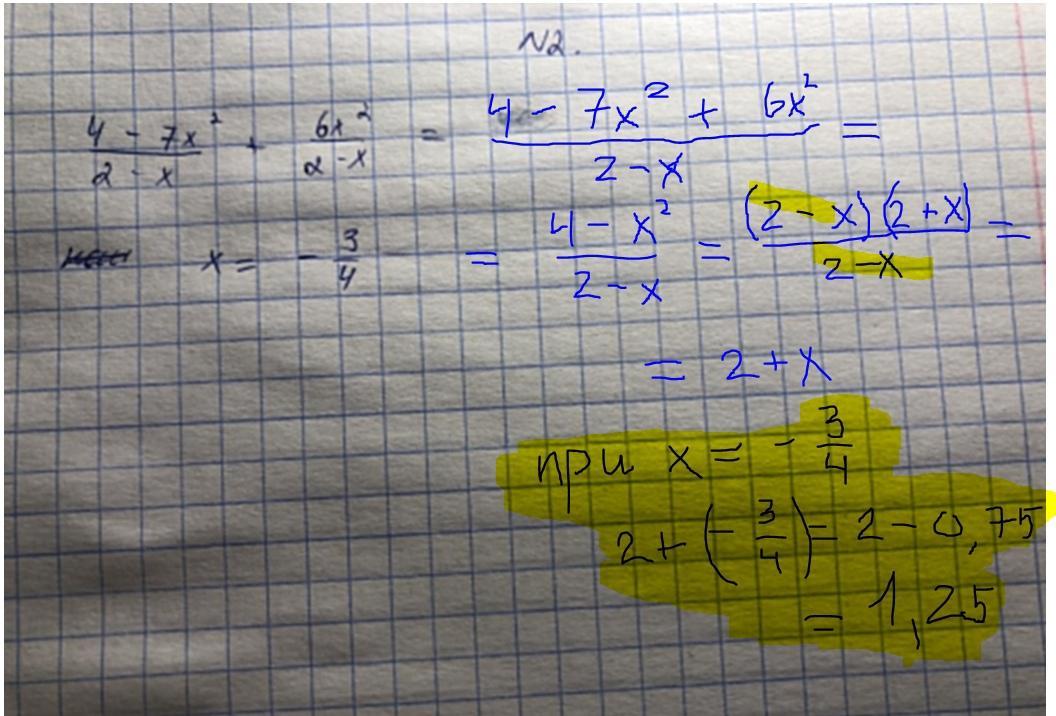 N2.
4 - 7x² / 2 - x + 6x² / 2 - x = 4 - 7x² + 6x² / 2 - x =
x = - 3/4
= 4 - x² / 2 - x = (2 - x)(2 + x) / 2 - x =
= 2 + x
при x = - 3/4
2 + (- 3/4) = 2 - 0,75
= 1,25